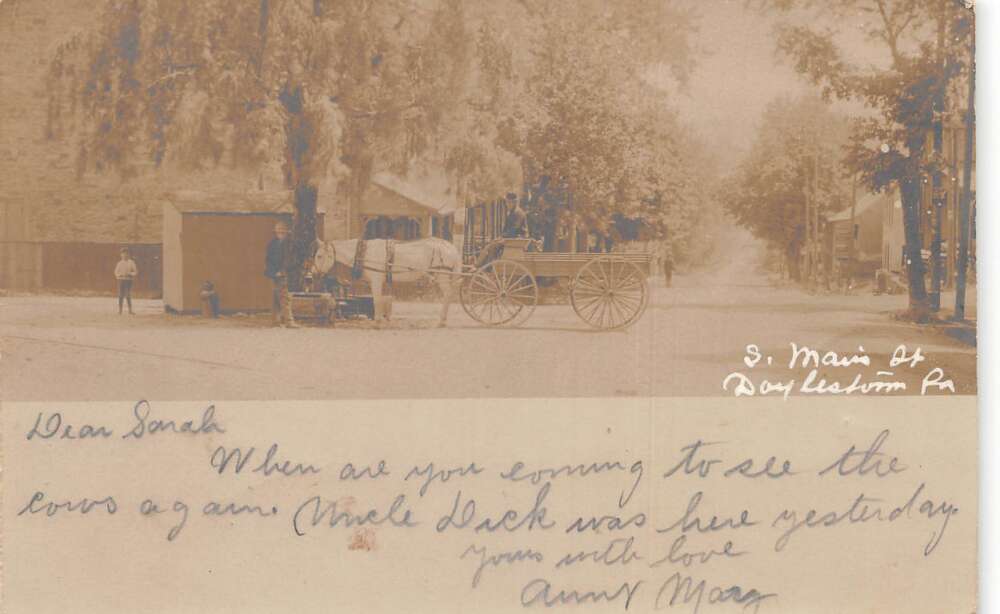 S. Main St
Doylestown Pa
Dear Sarah
When are you coming to see the
cows again. Uncle Dick was here yesterday.
Yours with love
Aunt Mary